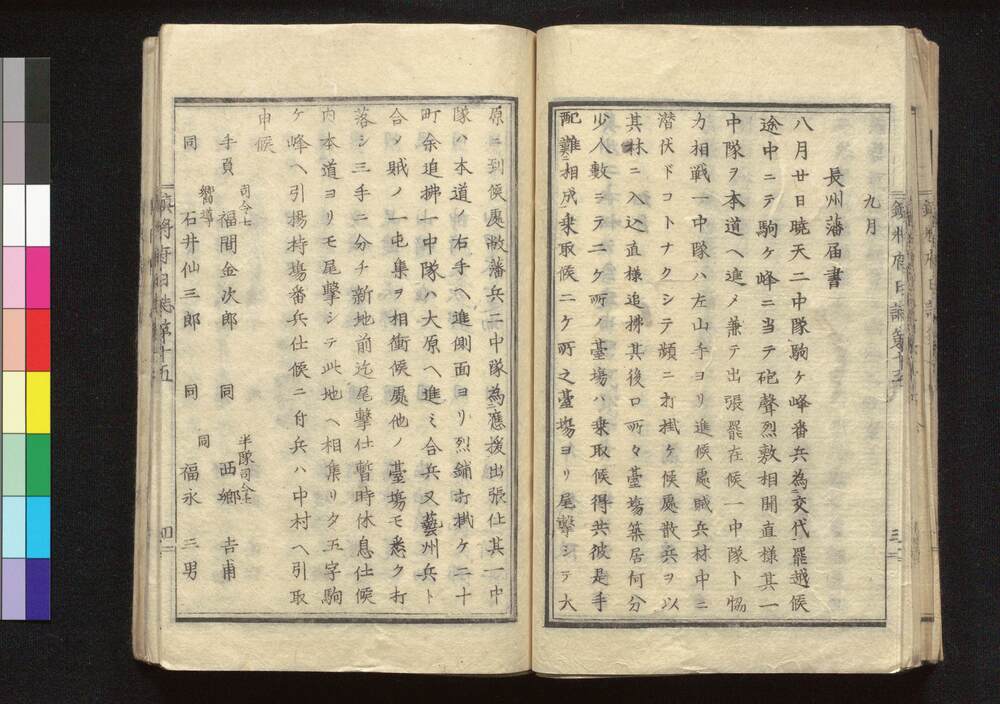 九月
長州藩届書
八月廿日暁天二中隊駒ヶ峰番兵為交代罷越候
途中ニテ駒ヶ峰ニ当テ砲聲烈敷相聞直様其一
中隊ヲ本道ヘ進メ兼テ出張罷在候一中隊ト恊
力相戦一中隊ハ左山手ヨリ進候處賊兵林中ニ
潜伏ドコトナクシテ頻ニ打掛ケ候處散兵ヲ以
其林ニ入込直様追拂其後口所々臺場築居何分
少人數ニテ二ケ所ノ臺場ハ乗取候得共彼是手
配難相成乗取候二ケ所之臺場ヨリ尾撃シテ大
原ニ到候處敝藩兵二中隊為應援出張仕其一中
隊ハ本道ノ右手ヘ進側面ヨリ烈鋪打掛ケ二十
町余追拂一中隊ハ大原ヘ進ミ合兵又藝州兵ト
合ノ賊ノ一屯集ヲ相衝候處他ノ臺場モ悉ク打
落シ三手ニ分チ新地前迄尾撃仕暫時休息仕候
内本道ヨリモ尾撃シテ此地ヘ相集リタ五字駒
ヶ峰ヘ引揚持場番兵仕候ニ付兵ハ中村ヘ引取
申候
手負 司令士 福間金次郎 同 半隊司令士 西郷吉甫
同 嚮導 石井仙三郎 同 同 福永三男
鎮将府日誌第十五
三
四